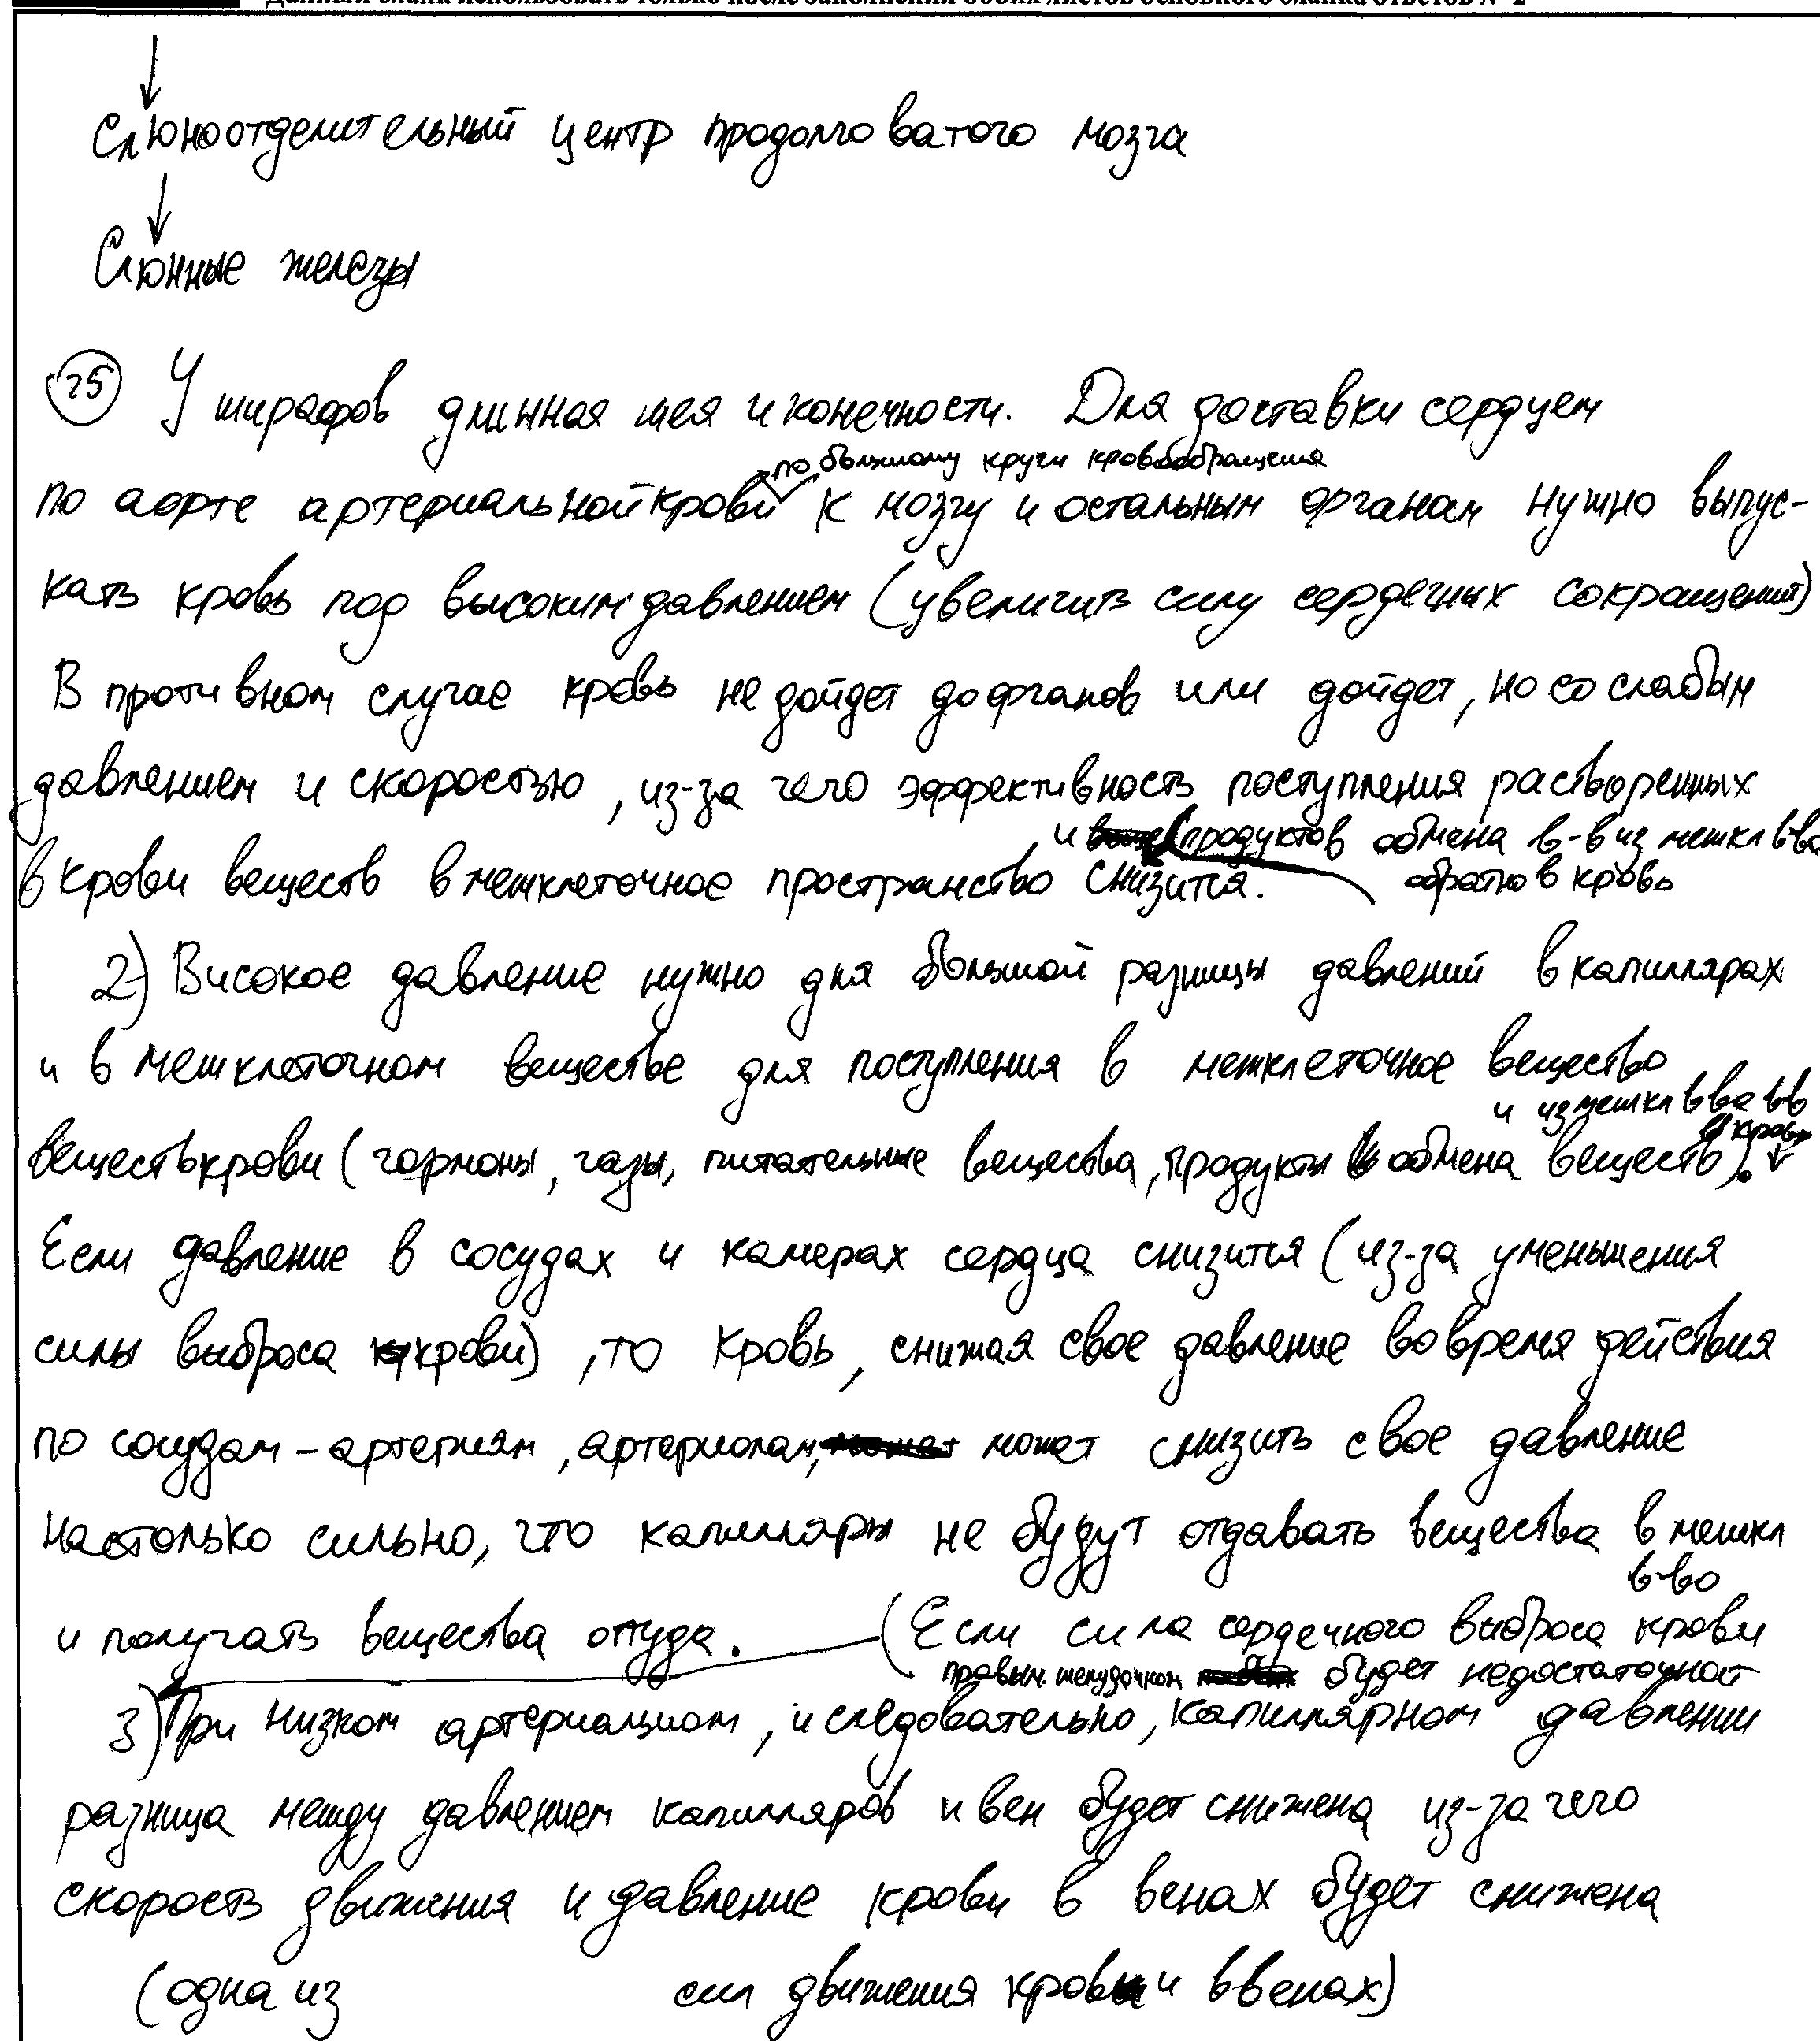 Данный бланк использовать только после заполнения обоих листов основного бланка ответов № 2
↓
Слюноотделительный центр продолговатого мозга
↓
Слюнные железы
25 У жирафов длинная шея и конечности. Для доставки сердцем
по большому кругу кровообращения
по аорте артериальной крови к мозгу и остальным органам нужно выпус-
кать кровь под высоким давлением (увеличить силу сердечных сокращений)
В противном случае кровь не дойдет до органов или дойдет, но со слабым
давлением и скоростью, из-за чего эффективность поступления растворенных
и продуктов обмена в-в из межкл в-ва
в крови веществ в межклеточное пространство снизится. обратно в кровь
2) Високое давление нужно для большой разницы давлений в капиллярах
и в межклеточном веществе для поступления в межклеточное вещество
и из межкл в-ва в
кровь
веществ крови (гормоны, газы, питательные вещества, продукты обмена веществ).
Если давление в сосудах и камерах сердца снизится (из-за уменьшения
силы выброса крови), то кровь, снижая свое давление во время действия
по сосудам - артериям, артериолам, может снизить свое давление
настолько сильно, что капилляры не будут отдавать вещества в межкл
в-во
и получать вещества оттуда. (Если сила сердечного выброса крови
правым желудочком будет недостаточной
3) При низком артериальном, и следовательно, капиллярном давлении
разница между давлением капилляров и вен будет снижена из-за чего
скорость движения и давление крови в венах будет снижена
(одна из сил движения крови в венах)